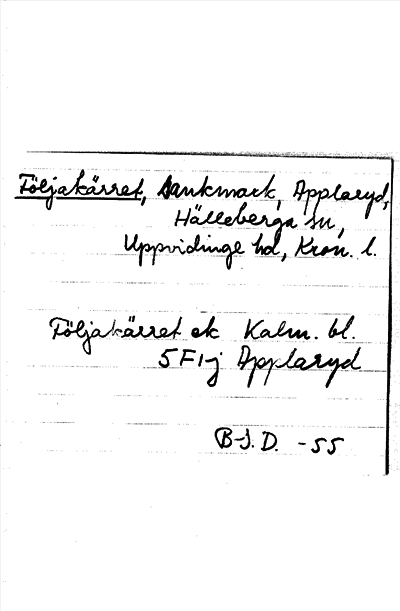 Följakärret, sankmark, Applaryd,
Hälleberga sn,
Uppvidinge hd, Kron. l.
Följakärret ek Kalm. bl.
5F1j Applaryd
B-J. D. -55